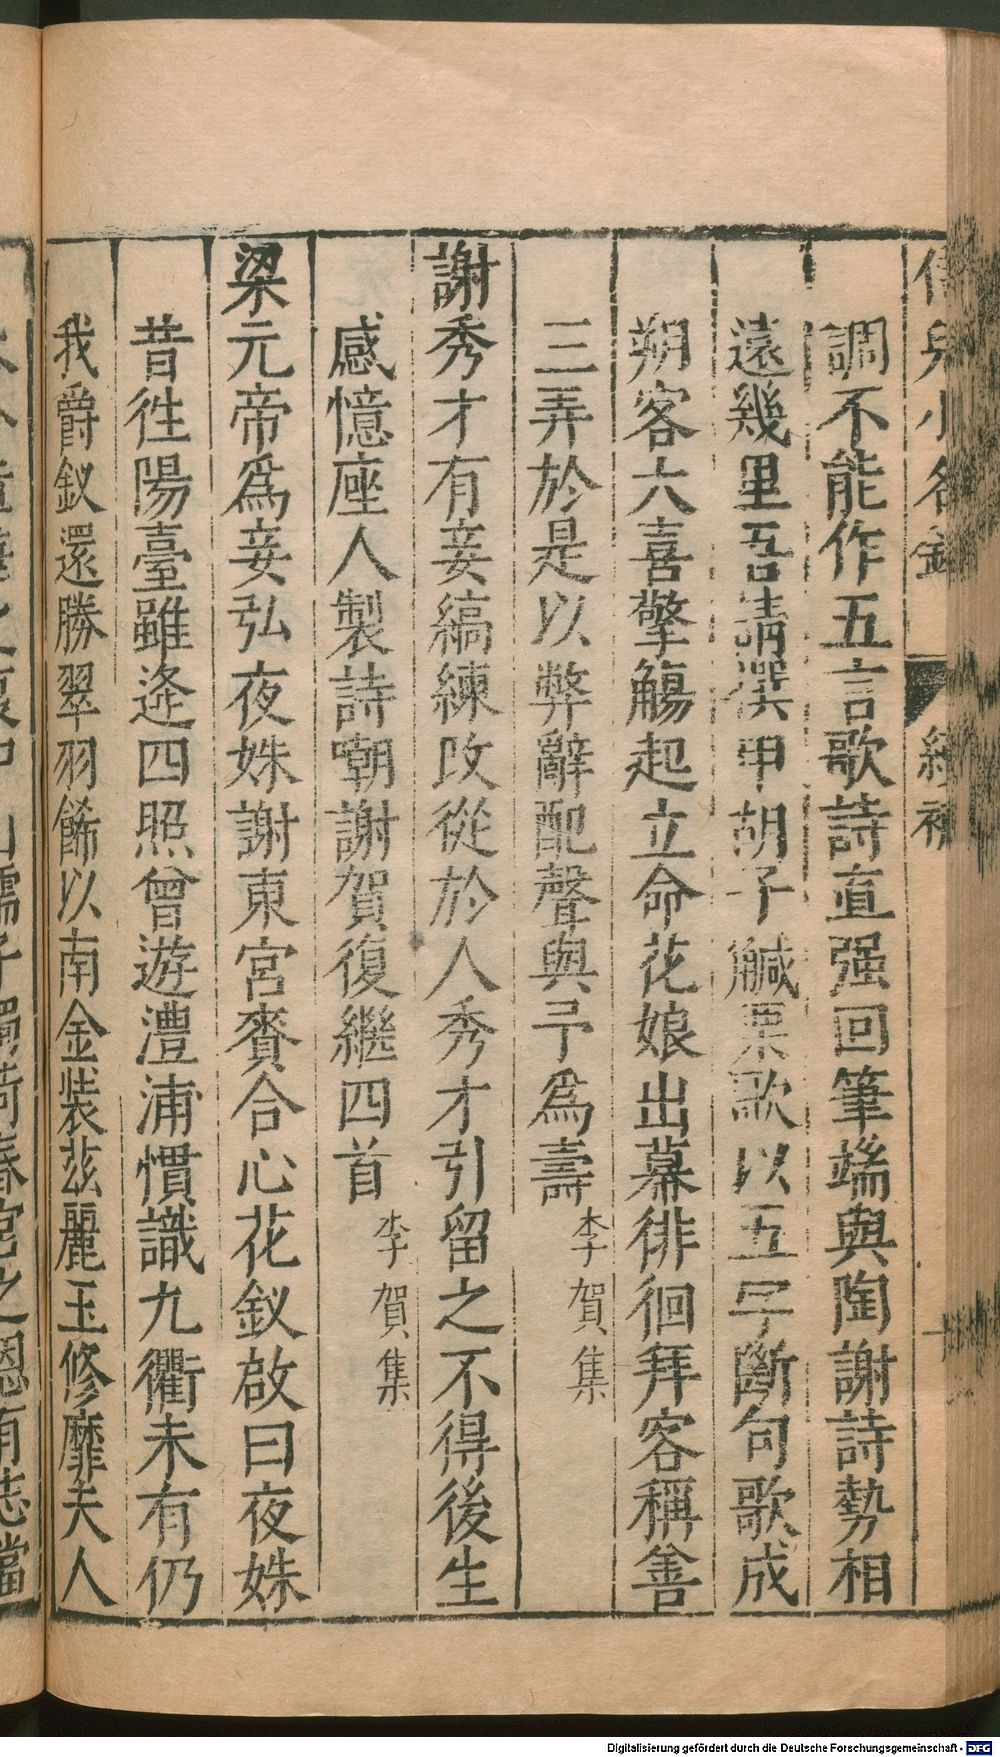 調不能作五言歌詩直强回筆端與陶謝詩勢相
遠幾里吾請撰申胡子觱栗歌以五字斷句歌成
朔客大喜擎觴起立命花娘出幕徘徊拜客稱善
三弄於是以弊辭配聲與予爲壽 李賀集
謝秀才有妾縞練改從於人秀才引留之不得後生
感憶座人製詩嘲謝賀復繼四首 李賀集
梁元帝爲妾弘夜姝謝東宮賚合心花釵啟曰夜姝
昔徃陽臺雖逄四照曾遊澧浦慣識九衢未有仍
我爵釵還勝翠羽餙以南金装兹麗玉修靡夫人
Digitalisierung gefördert durch die Deutsche Forschungsgemeinschaft - DFG